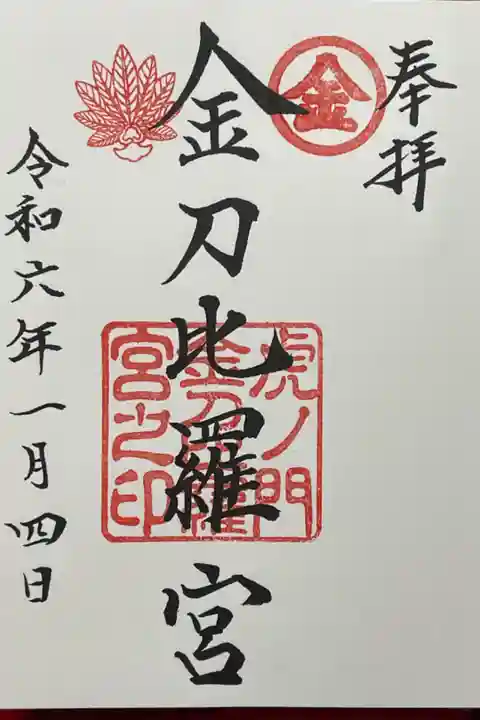 奉拝
金
金刀比羅宮
虎ノ門
金刀比羅
宮之印
令和六年一月四日